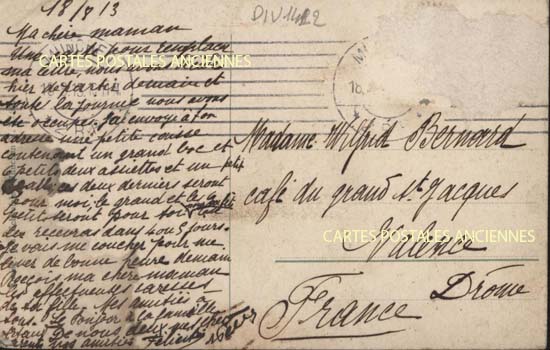 18/7 13
DIV1422
Ma chère maman
Une carte pour remplacer
ma lettre, nous avons
hier de partir demain et
toute la journée nous avons
été occupés j'ai envoyé à ton
adresse une petite caisse
contenant un grand boc et
6 petits deux assiettes et un petit
ces deux derniers seront
pour moi, le grand et les 6
petits seront pour toi
recevras dans 5 jours.
Je vais me coucher pour me
lever de bonne heure demain
Reçois ma chère maman
les affectueuses caresses
de ta fille. Mes amitiés à
tous. Le Bonjour à la famille
de nous deux
amitiés Félicie
Madame Wilfrid Bernard
café du grand St Jacques
Valence
Drôme
France
CARTES POSTALES ANCIENNES
CARTES POSTALES ANCIENNES